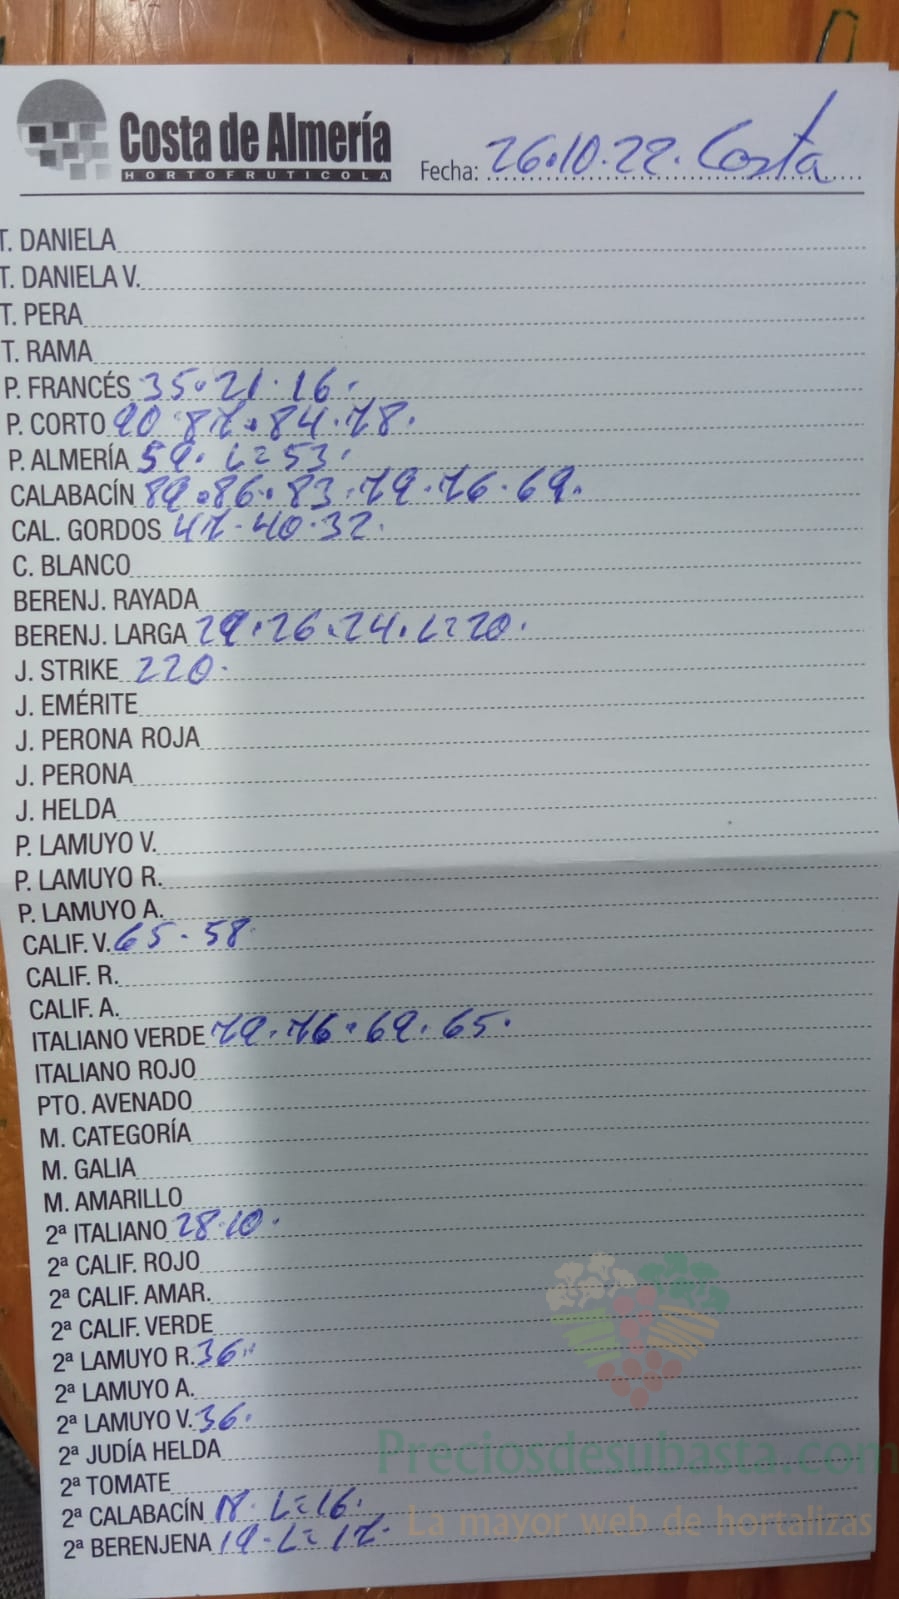 Costa de Almería
HORTOFRUTICOLA
Fecha: 26.10.22. Costa
T. DANELA
T. DANIELA V.
T. PERA
T. RAMA
P. FRANCÉS 35. 21. 16.
P. CORTO 90. 87. 84. 78.
P. ALMERÍA 59. L= 53.
CALABACÍN 89. 86. 83. 79. 76. 69.
CAL. GORDOS 47. 40. 32.
C. BLANCO
BERENJ. RAYADA
BERENJ. LARGA 29. 26. 24. L= 20.
J. STRIKE 220.
J. EMÉRITE
J. PERONA ROJA
J. PERONA
J. HELDA
P. LAMUYO V.
P. LAMUYO R.
P. LAMUYO A.
CALIF. V. 65. 58
CALIF. R.
CALIF. A.
ITALIANO VERDE 79. 76. 69. 65.
ITALIANO ROJO
PTO. AVENADO
M. CATEGORÍA
M. GALIA
M. AMARILLO
2ª ITALIANO 28. 10.
2ª CALIF. ROJO
2ª CALIF. AMAR.
2ª CALIF. VERDE
2ª LAMUYO R. 36
2ª LAMUYO A.
2ª LAMUYO V. 36.
2ª JUDÍA HELDA
Preciosdesubasta.com
2ª TOMATE
2ª CALABACÍN L= 16.
La mayor web de hortalizas
2ª BERENJENA 19. L= 17.